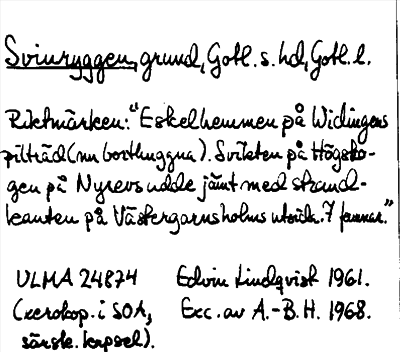 Svinryggen, grund, Gotl. s. hd, Gotl. l.
Riktmärken: "Eskelhemmen på Widingers
pilträd (nu borthuggna). Svikten på Högsko-
gen på Nyrevsudde jämt med strand-
kanten på Västergarnsholms utsida. 7 famnar."
ULMA 24874 Edvin Lindqvist 1961.
(xerokop. i SOA, Exc. av A.-B. H. 1968.
särsk. kapsel).